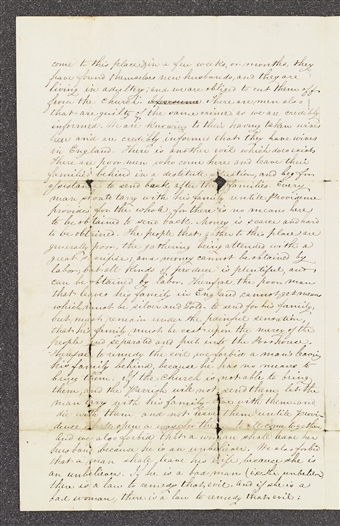 come to this place in a few weeks, or months, they
have found themselves new husbands, and they are
living in adultery; and we are obliged to cut them off
from the Church. There are men also
that are guilty of the same crime, as we are credibly
informed. We are knowing to their having taken wives
here and are credibly informed that they have wives
in England. There is another evil which does exist.
There are poor men who come here and leave their
families behind in a destitute situation, and beg for
assistance to send back after their families. Every
man should tarry with his family until providence
provides for the whole, for there is no means here
to be obtained to send back. Money is scarce and hard
to be obtained. The people that gather to this place are
generally poor, the gathering being attended with a
great sacrifice; and money cannot be obtained by
labor, but all kinds of produce is plentiful, and
can be obtained by labor. Therefore the poor man
that leaves his family in England, cannot get means
which must be silver and gold to send for his family,
but must remain under the painful sensation,
that his family must be cast upon the mercy of the
people and separated and put into the Poorhouse.
Therefore to remedy the evil, we forbid a man's leaving
his family behind, because he has no means to
bring them. If the Church is not able to bring
them, and the Parish will not send them, let the
man tarry with his family live with them and
die with them and not leave them until provi-
dence shall open a way for them to all come together.
And we also forbid that a woman shall leave her
husband because he is an unbeliever. We also forbid
that a man shall leave his wife because she is
an unbeliever. If he is a bad man (i.e. the unbeliever)
there is a law to remedy that evil. And if she is a
bad woman, there is a law to remedy that evil;